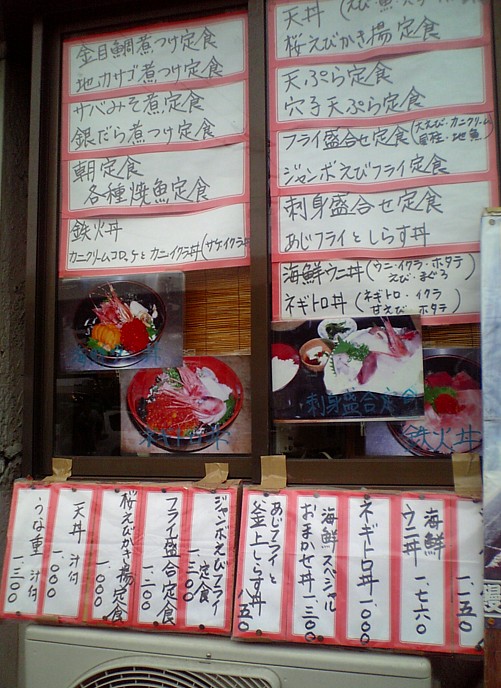 金目鯛煮つけ定食
地カサゴ煮つけ定食
サバみそ煮定食
銀だら煮つけ定食
朝定食
各種焼魚定食
鉄火丼
カニクリームコロッケとカニイクラ丼(サケイクラ丼
天丼(えび・魚
桜えびかき揚定食
天ぷら定食
穴子天ぷら定食
フライ盛合せ定食(大えび・カニクリーム
地魚)
ジャンボえびフライ定食
刺身盛合せ定食
あじフライとしらす丼
海鮮ウニ丼(ウニ・イクラ・ホタテ
えび・まぐろ)
ネギトロ丼(ネギトロ・イクラ
甘えび・ホタテ)
刺身盛合定食
鉄火丼
一、一五〇
海鮮
ウニ丼 一、七六〇
ネギトロ丼 一〇〇〇
海鮮スペシャル
おまかせ丼 一三〇〇
あじフライと
釜上しらす丼 八五〇
ジャンボえびフライ
定食 一、三〇〇
フライ盛合定食 一、二〇〇
桜えびかき揚定食 一、〇〇〇
天丼 汁付 一、〇〇〇
うな重 汁付 一、三〇〇